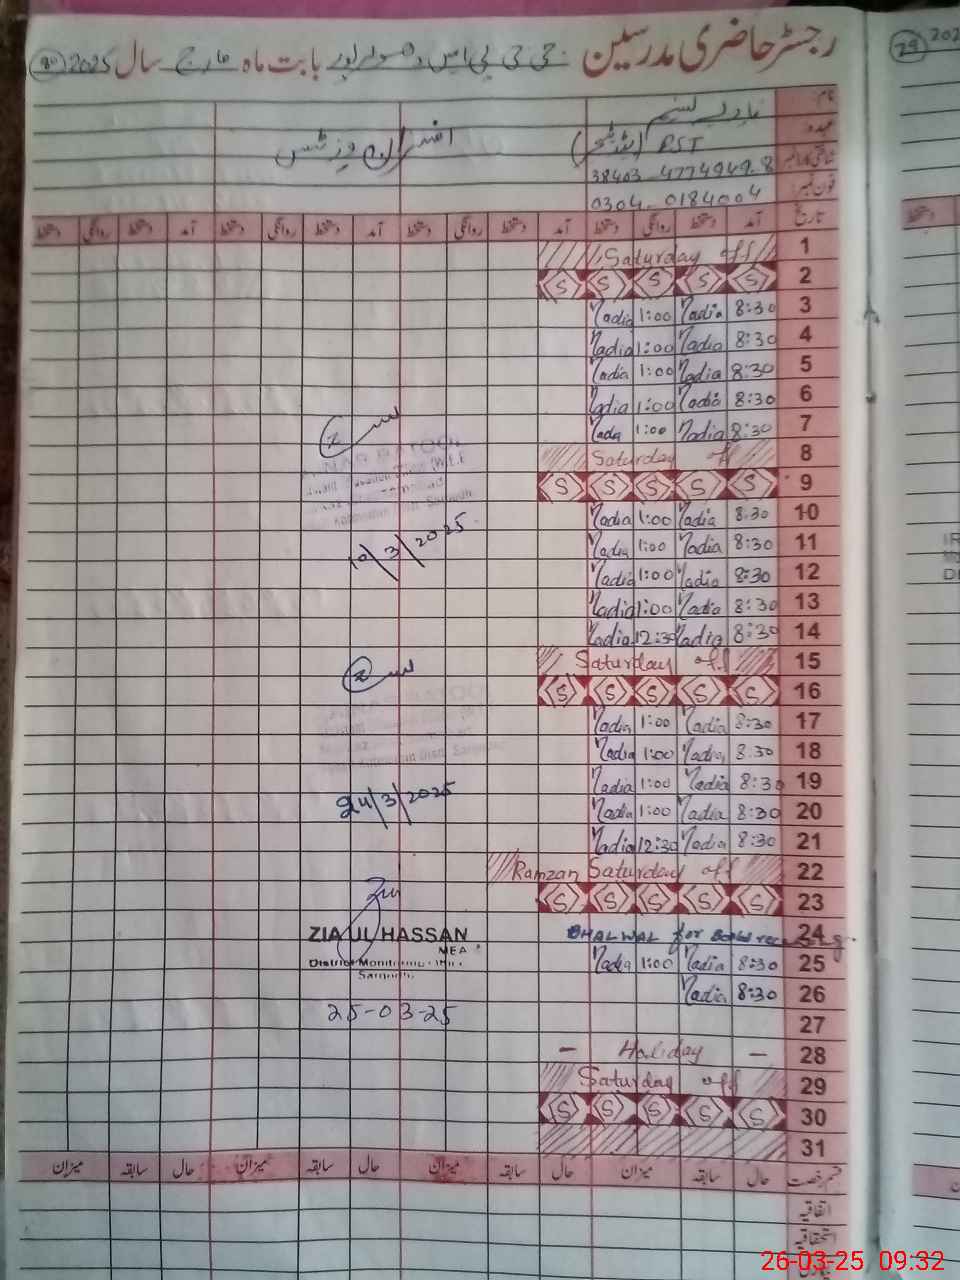 رجسٹر حاضری مدرسین جی جی پی ایس دھولر پور بابت ماہ مارچ سال 2025 80
29 202
نام:
عہدہ PST
افسران وزٹس
شناختی کارڈ نمبر 38403-4774949-8
فون نمبر: 0304-0184004
تاریخ آمد دستخط روانگی دستخط آمد دستخط روانگی دستخط آمد دستخط روانگی دستخط
1 Saturday off
2 S S S S S
3 8:30 Nadia 1:00 Nadia
4 8:30 Nadia 1:00 Nadia
5 8:30 Nadia 1:00 Nadia
6 8:30 Nadia 1:00 Nadia
7 8:30 Nadia 1:00 Nadia
8 Saturday off
9 S S S S S
10 8:30 Nadia 1:00 Nadia
11 8:30 Nadia 1:00 Nadia
12 8:30 Nadia 1:00 Nadia
13 8:30 Nadia 1:00 Nadia
14 8:30 Nadia 12:30 Nadia
15 Saturday off
16 S S S S S
17 8:30 Nadia 1:00 Nadia
18 8:30 Nadia 1:00 Nadia
19 8:30 Nadia 1:00 Nadia
20 8:30 Nadia 1:00 Nadia
21 8:30 Nadia 12:30 Nadia
22 Ramzan Saturday off
23 S S S S S
24 BHALWAL for
25 8:30 Nadia 1:00 Nadia
26 8:30 Nadia
27
28 - Holiday -
29 Saturday off
30 S S S S S
31
10/3/2025
24/3/2025
ZIA UL HASSAN
MEA
District Monitoring
25-03-25
قسم رخصت حال سابقہ میزان حال سابقہ میزان حال سابقہ میزان حال سابقہ میزان
اتفاقیہ
استحقاقیہ
26-03-25 09:32